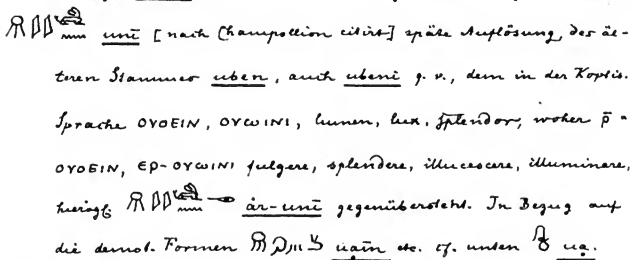 unī [nach Champollion citirt] späte Auflösung des äl-
teren Stammes uben, auch ubenī q. v., dem in der Koptis.
Sprache ΟΥΟΕΙΝ, ΟΥωΙΝΙ, lumen, lux, splendor, woher p̄-
ΟΥΟΕΙΝ, ЄΡ-ΟΥωΙΝΙ fulgere, splendere, illucescere, illuminare,
hierogl. ár-unī gegenübersteht. In Bezug auf
die demot. Formen uaīn etc. cf. unten ua.